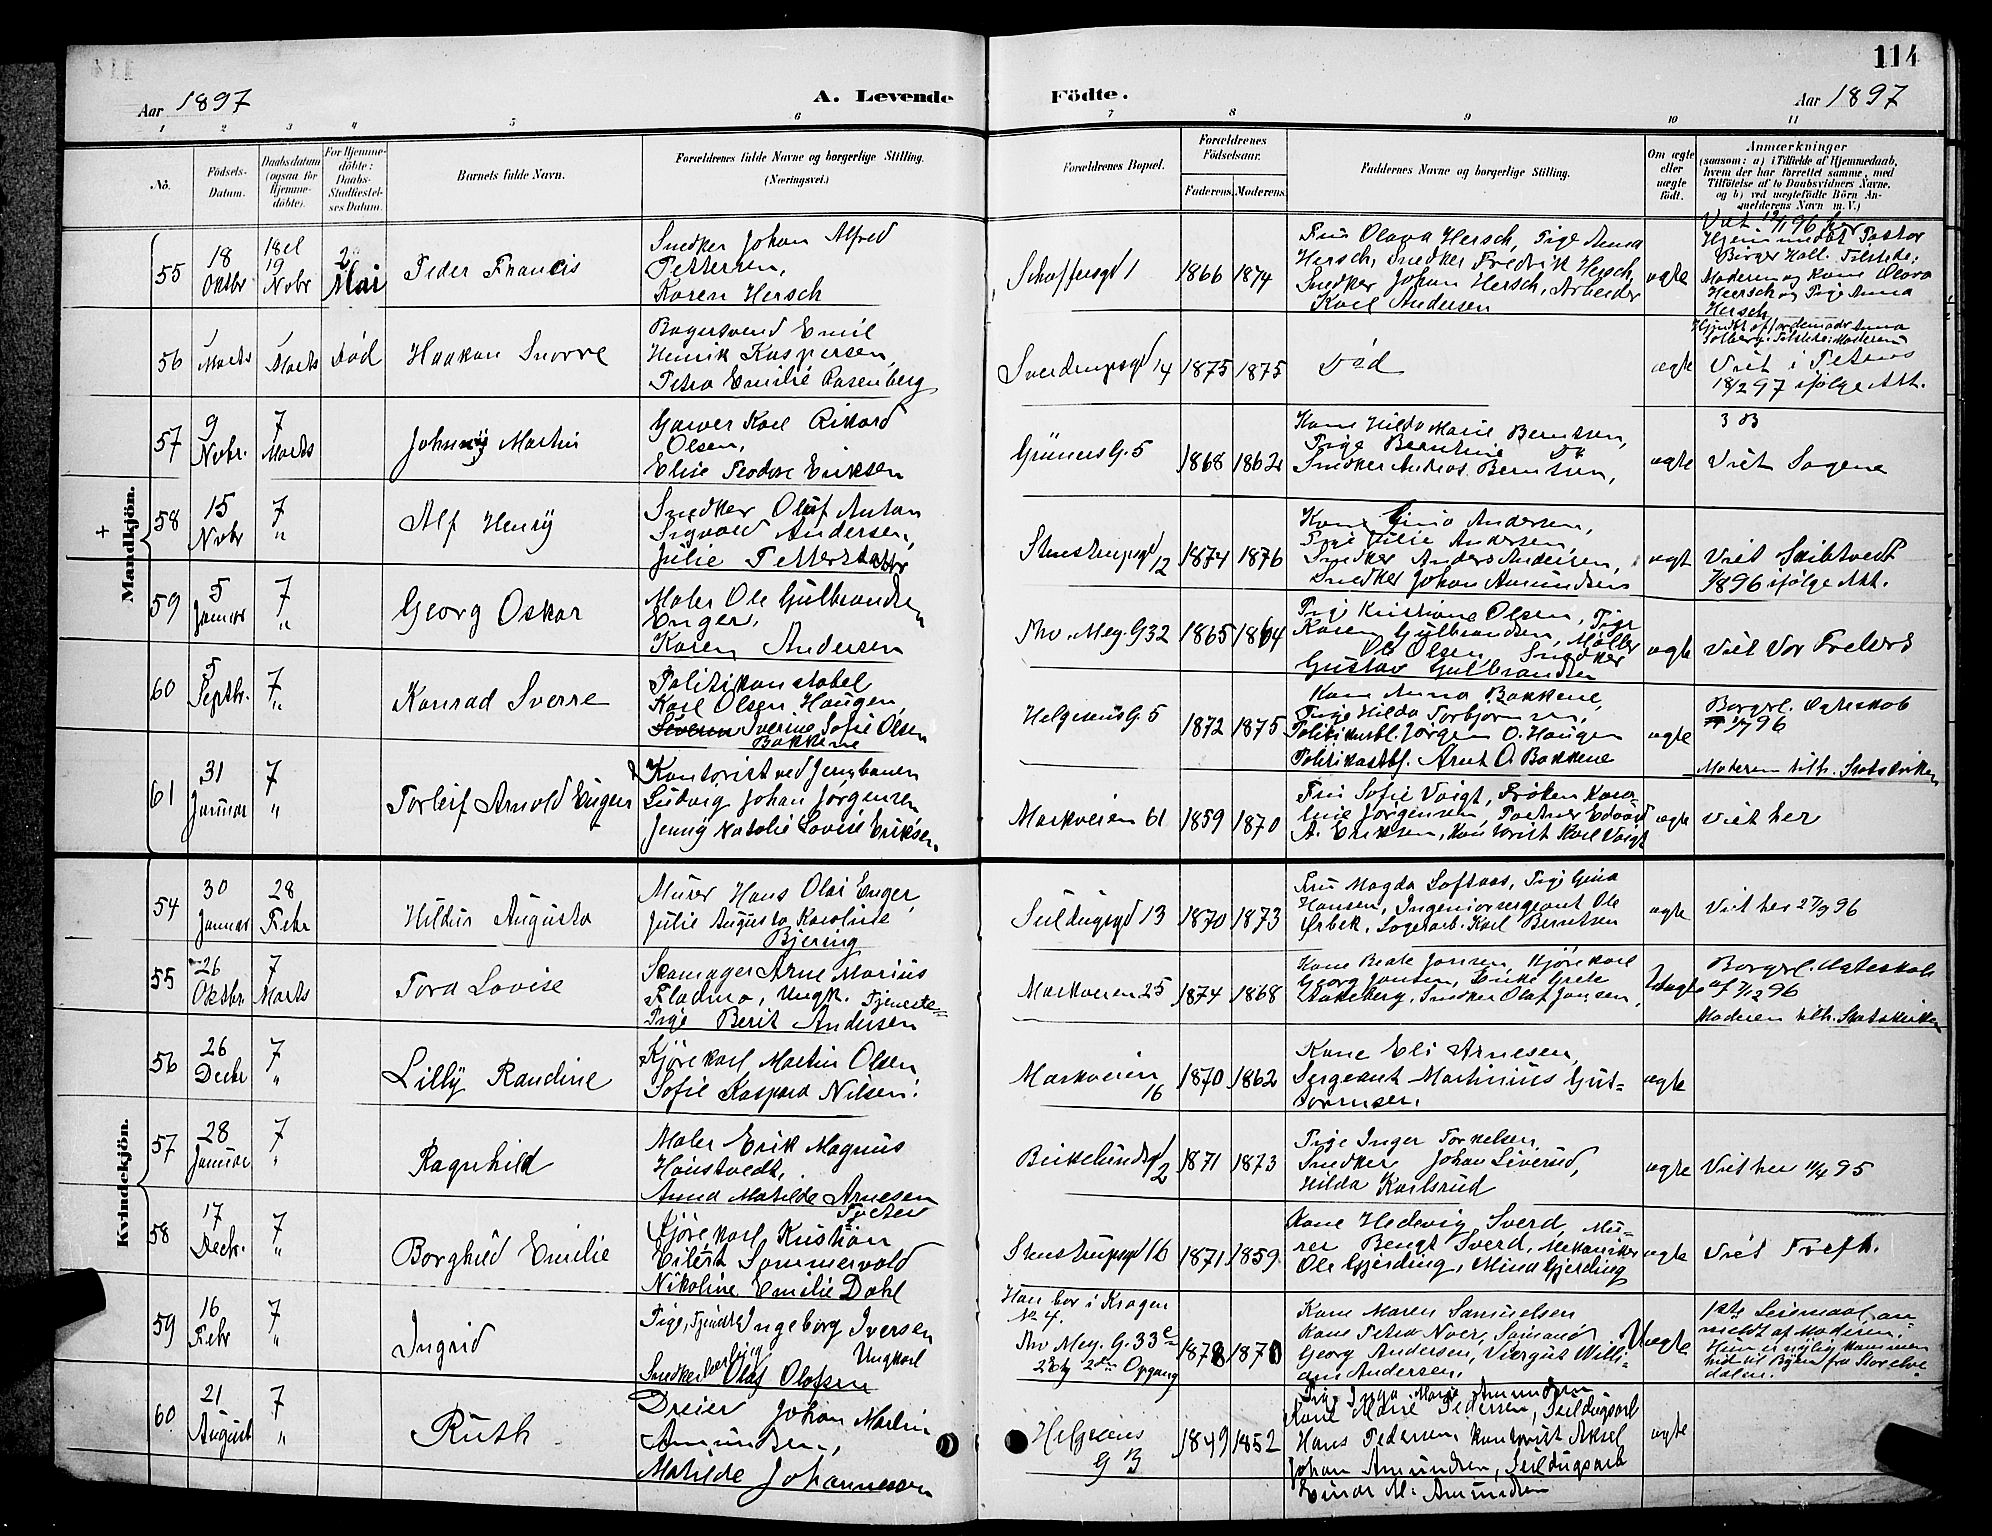 114
Aar 1897
A. Levende
Födte.
Aar 1897
1 2 3 4 5 6 7 8 9 10 11
No.
Födsels-
Datum.
Daabsdatum
(ogsaa for
Hjemme-
döbte).
For Hjemme-
döbte:
Daabs-
Stadfæstel-
ses Datum.
Barnets fulde Navn.
Forældrenes fulde Navne og borgerlige Stilling.
(Næringsvei.)
Forældrenes Bopæl.
Forældrenes
Födselsaar.
Faderens. Moderens.
Faddernes Navne og borgerlige Stilling.
Om ægte
eller
uægte
födt.
Anmærkninger
(saasom: a) i Tilfælde af Hjemmedaab,
hvem der har forrettet samme, med
Tilföielse af to Daabsvidners Navne,
og b) ved uægtefödte Börn An-
melderens Navn m. V.)
Mandkjön.
55
18
Oktbr
18 el
19
Novbr
2
Mai
Peder Francis
Snedker Johan Alfred
Pettersen,
Karen Hersch
1866 1874
Fru Olava Hersch, Pige Anna
Hersch, Snedker Fredrik Hersch,
Snedker Johan Hersch, Arbeider
Karl Andersen
ægte
Hjemmedøbt Pastor
Birger Hall. Tilstede:
Moderen og Kone Olava
Heersch og Pige Anna
Hersch
56
1
Marts
1
Marts
Død
Haakon Snorre
Bagersvend Emil
Henrik Kaspersen,
Petra Emilie Rosenberg
Sverdrupsgd 14
1875 1875
Død
ægte
Hjmdbt af Jordemoder Anna
Solberg. Tilstede: Moderen
Viet i Petrus
18/2 97 ifølge Att.
57
9
Novbr.
7
Marts
Johnny Martin
Garver Karl Rikard
Olsen,
Elise Teodore Eriksen
Grüners G. 5
1868 1862
Kone Hilda Marie Berntsen,
Pige Berntine Do
Snedker Andreas Berntsen,
ægte
Viet Sagene
58
15
Novbr
7
"
Alf Henry
Snedker Oluf Anton
Sigvald Andersen,
Julie Petterstator
Stenstrupsgd 12
1874 1876
Kone Gina Andersen,
Pige Julie Andersen
Snedker Anders Andersen,
Snedker Johan Amundsen
ægt
Viet Skibtvedt
7/8 96 ifølge Att.
59
5
Januar
7
"
Georg Oskar
Maler Ole Gulbrandsen
Enger,
Karen Andersen
Thv. Mey. G 32
1865 1864
Pige Kristiane Olsen, Pige
Karen Gulbrandsen, Møller
Ole Olsen Snedker
Gustav Gulbrandsen
ægte
Viet Vor Frelsers
60
5
Septbr.
7
"
Konrad Sverre
Politikonstabel
Karl Olsen Haugen,
Severine Sofie Olsen
Bakkene
Helgesens G. 5
1872 1875
Kone Anna Bakkene,
Pige Hilda Torbjørnsen,
Politikonstbl. Jørgen O. Haugen
Politikonstbl. Arnt O Bakkene
ægte
Borgrl. Ægteskab
1/7 96
Moderen tilh. Statskirken
61
31
Januar
7
"
Torleif Arnold Eugen
Kontorist ved Jernbanen
Ludvig Johan Jørgensen
Jenny Natalie Lovise Eriksen.
Markveien 61
1859 1870
Fru Sofie Voigt, Frøken Karo-
line Jørgensen, Partner Edvard
A. Eriksen, Kontorist Karl Voigt
ægte
Viet her
Kvindekjön.
54
30
Januar
28
Febr
Hildur Augusta
Murer Hans Olai Enger,
Julie Augusta Karoline
Bjering
Seildugsgd 13
1870 1873
Fru Magda Loftaas, Pige Gina
Hansen, Ingeniørsergeant Ole
Ørbek, Lagerarb. Karl Berntsen
ægte
Viet her 27/9 96
55
26
Oktbr.
7
Marts
Tora Lovise
Skomager Arne Marius
Fladmo, Ungk. Tjeneste-
Pige Berit Andersen
Markveien 25
1874 1868
Kone Beate Jansen, Kjørekarl
Georg Jansen, Enke Grete
Aakeberg, Snedker Olaf Jansen,
Uægte
Borgrl. Ægteskab
af 7/12 96
Moderen tilh. Statskirken
56
26
Decbr
7
"
Lilly Randine
Kjørekarl Martin Olsen
Sofie Kaspara Nilsen.
Markveien
16
1870 1862
Kone Eli Arnesen,
Sergeant Martinius Gut-
tormsen.
ægte
57
28
Januar
7
"
Ragnhild
Maler Erik Magnus
Haustvedt,
Anna Matilde Arnesen
Birkelundsgd
2
1871 1873
Pige Inger Torkelsen,
Snedker Johan Siverud,
Hilda Karlsrud
ægte
Viet her 11/4 95
58
17
Decbr.
7
"
Borghild Emilie
Kjørekarl Kristian
Eilert Sommervold
Nikoline Emilie Dahl
Stenstrupsgd 16
1871 1859
Kone Hedevig Sverd, Mu-
rer Bengt Sverd, Mekaniker
Ole Gjerding, Mina Gjerding
ægte
Viet Trefh.
59
16
Febr
7
"
Ingrid
Pige, Ingeborg Iversen
Ungkarl
Snedkerlærling Olaf Olafsen
Han bor i Kragen
No 4.
Thv Mey. G. 33c
2 Etg 2den Opgang
1878 1870
Kone Maren Samuelsen
Kone Petra Noer, Sømand
Georg Andersen, Viergut Willi-
am Andersen.
Uægte
1ste Leiermaal an-
meldt af Moderen.
Hun er nylig kommen
hid til Byen fra Storelve-
dalen.
60
21
August
7
"
Ruth
Dreier Johan Martin
Amundsen,
Matilde Johannessen
Helgesens
G
1849 1852
Pige Inga Marie Amundsen
Kone Marie Pedersen, Seildugsarb
Hans Pedersen, Kontorist Aksel
Johan Amundsen, Seildugsarb
Einar M. Amundsen
ægte